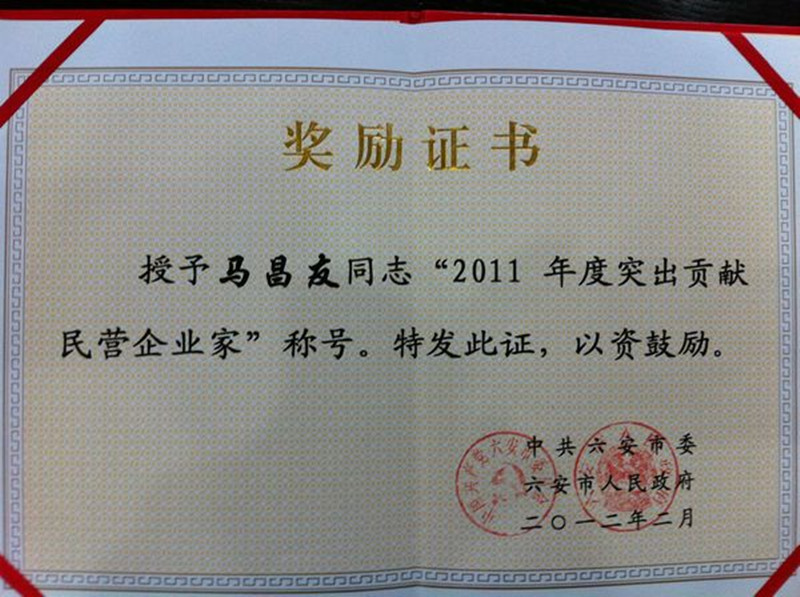 奖励证书
授予马昌友同志“2011 年度突出贡献
民营企业家”称号。特发此证，以资鼓励。
中共六安市委
六安市人民政府
二〇一二年二月